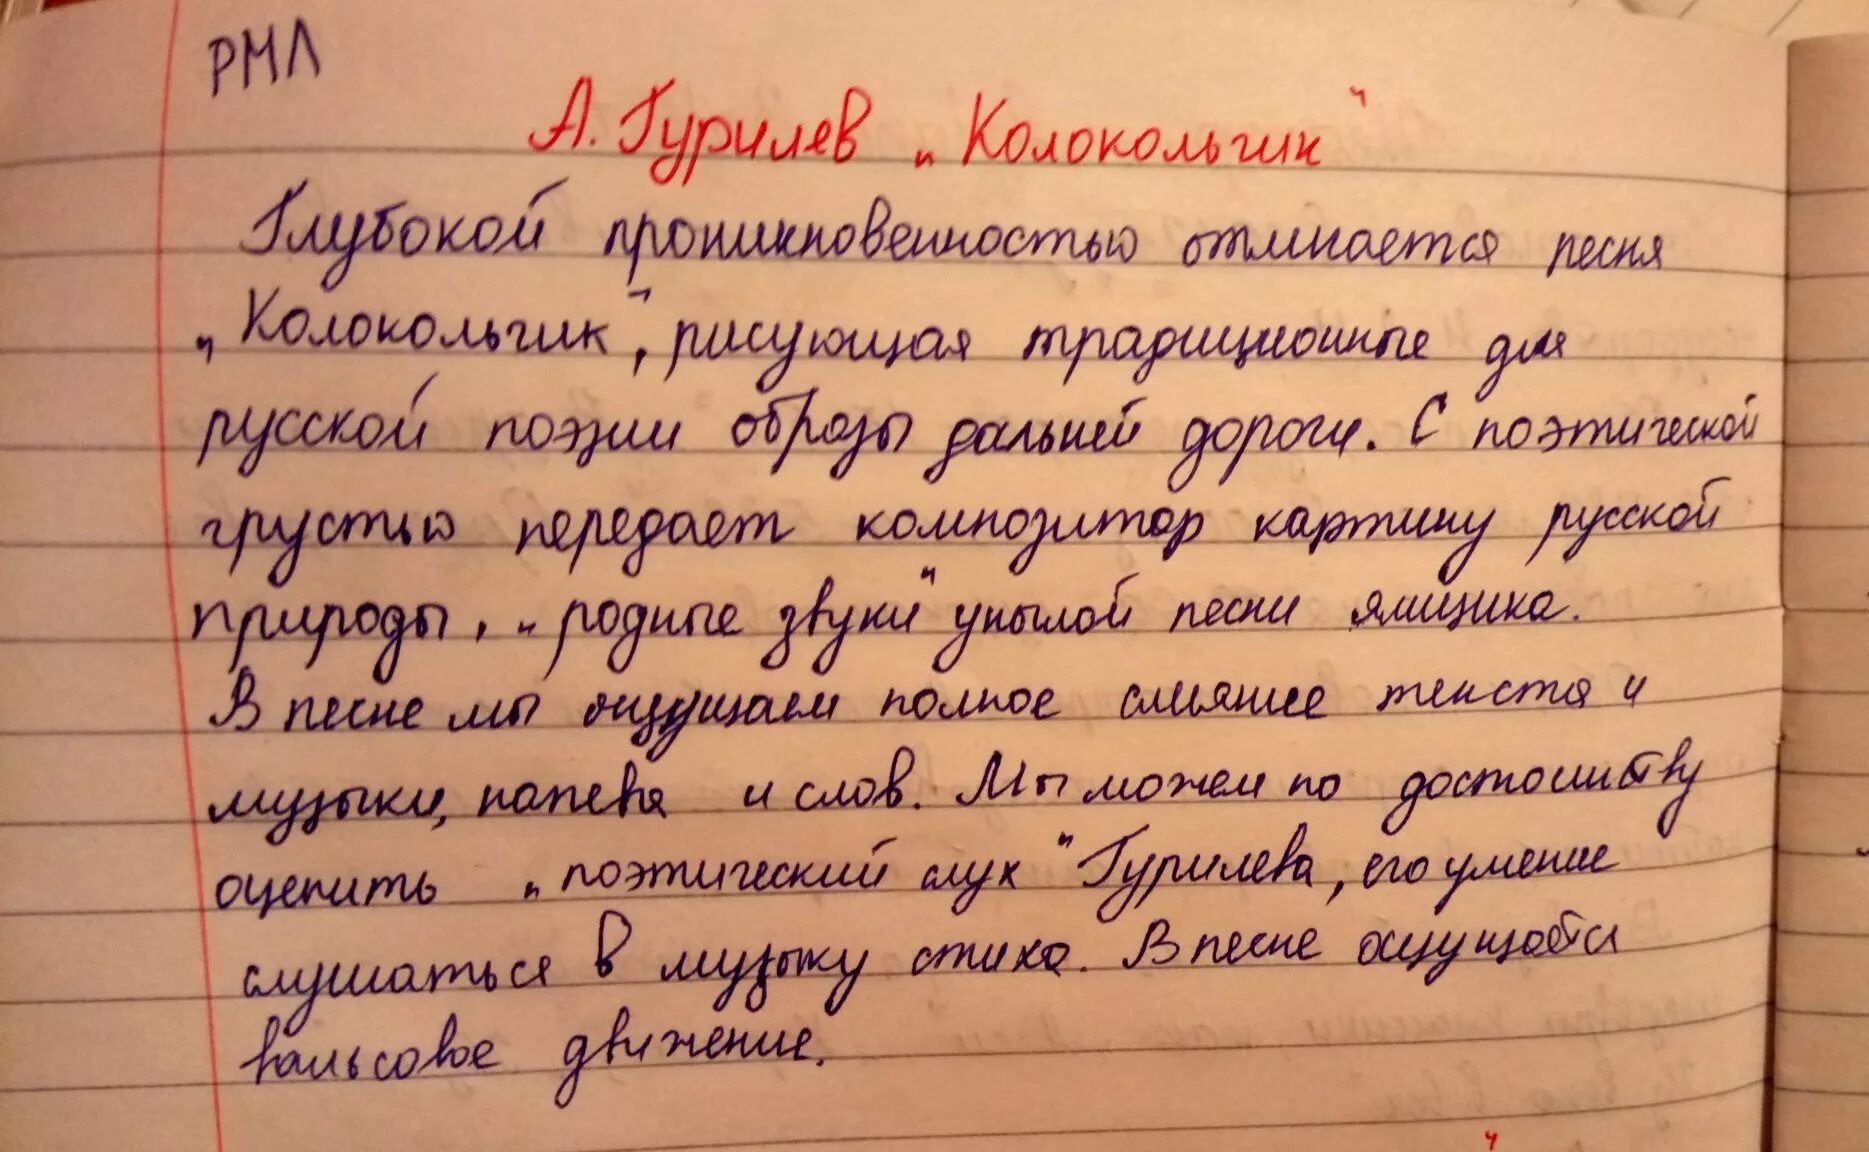 РМЛ
А. Гурилев „Колокольчик"
Глубокой проникновенностью отличается песня
„Колокольчик", рисующая традиционные для
русской поэзии образы дальней дороги. С поэтической
грустью передает композитор картину русской
природы, „родные звуки" унылой песни ямщика.
В песне мы ощущаем полное слияние текста и
музыки, напева и слов. Мы можем по достоинству
оценить „поэтический слух" Гурилева, его умение
слушаться в музыку стиха. В песне ощущается
вальсовое движение.